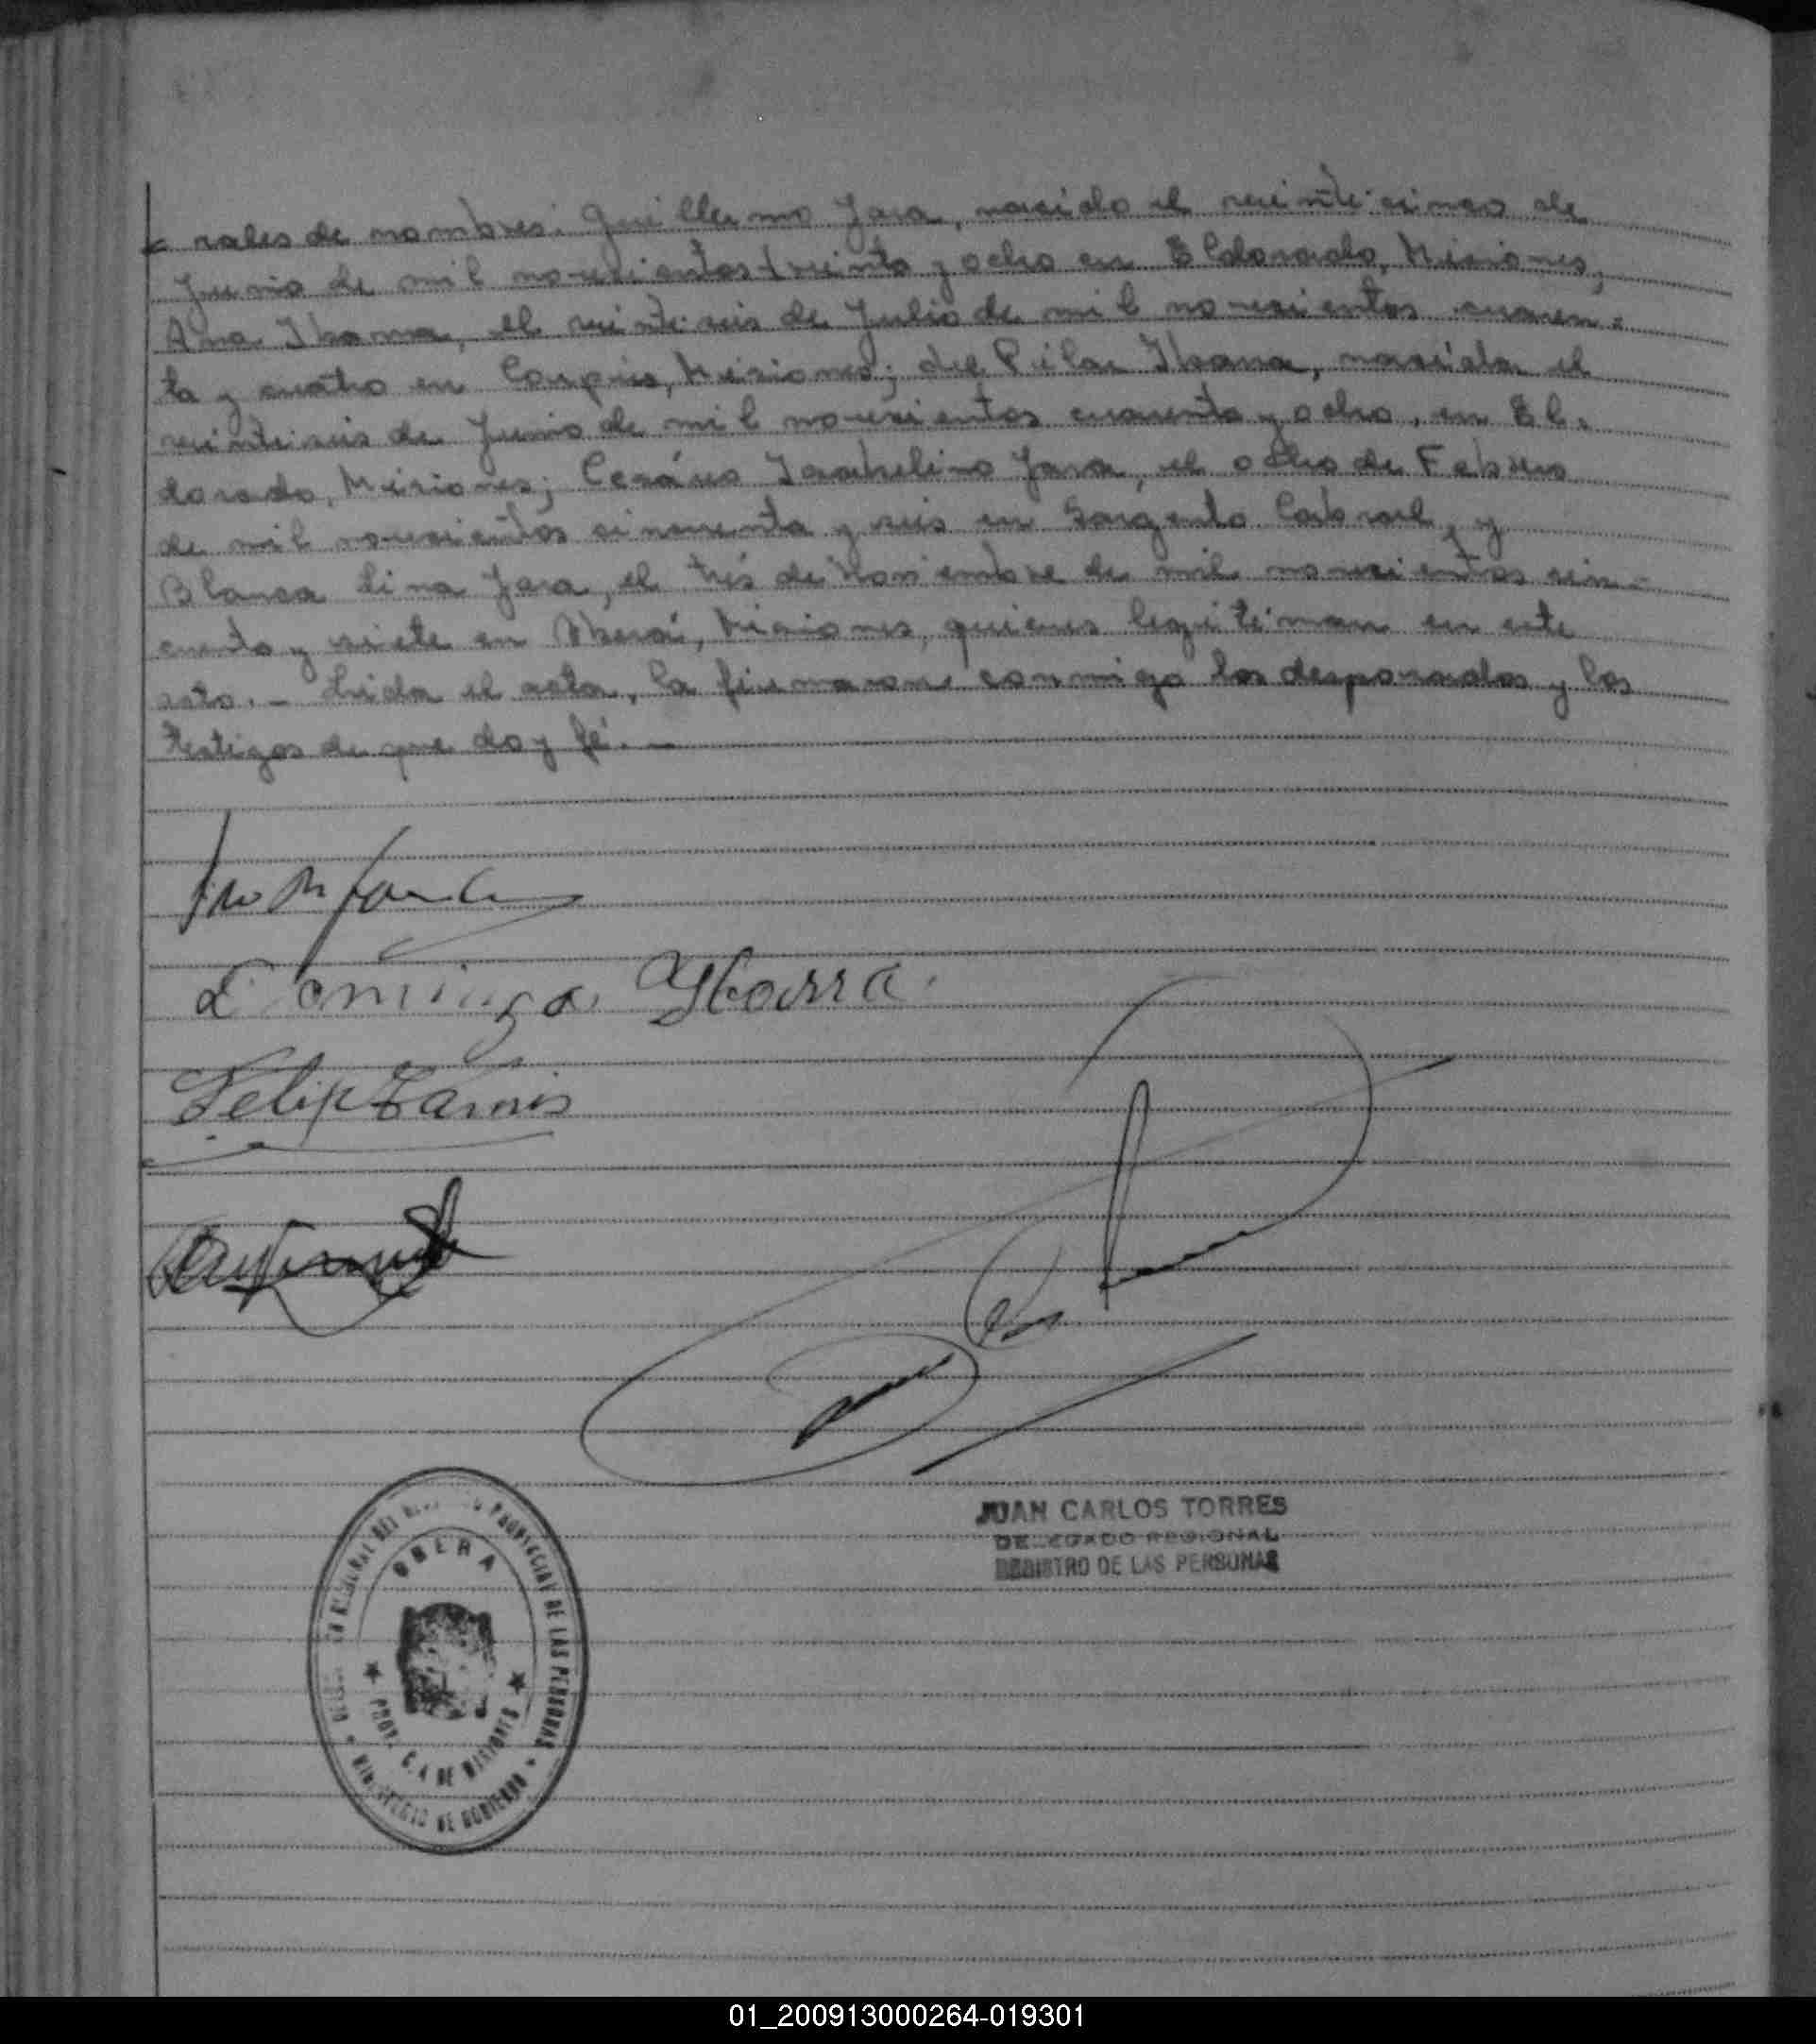 rales de nombres: Guillermo Jara, nacido el veinticinco de
Junio de mil novecientos treinta y ocho en Eldorado, Misiones,
Ana Ibarra, el veintiseis de Julio de mil novecientos cuaren-
ta y cuatro en Corpus, Misiones; del Pilar Ibarra, nacida el
veintiseis de Junio de mil novecientos cuarenta y ocho, en El-
dorado, Misiones; Cesáreo Jara, el ocho de Febrero
de mil novecientos cincuenta y seis en Sargento Cabral, y
Blanca Lina Jara, el trés de Noviembre de mil novecientos cin-
cuenta y siete en Oberá, Misiones, quienes legitiman en este
acto. - Leida el acta, la firmaron conmigo los desposados y los
testigos de que doy fé. -
Dominga Ybarra.
Felip
JUAN CARLOS TORRES
DELEGADO REGIONAL
REGISTRO DE LAS PERSONAS
PROVINCIAL DE LAS PERSONAS
OBERA
PROV. DE MISIONES
MINISTERIO DE GOBIERNO
01_200913000264-019301